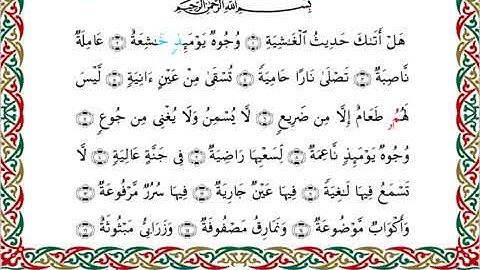 بِسْمِ ٱللَّهِ ٱلرَّحْمَٰنِ ٱلرَّحِيمِ
هَلْ أَتَىٰكَ حَدِيثُ ٱلْغَٰشِيَةِ ۝ وُجُوهٌ يَوْمَئِذٍ خَٰشِعَةٌ ۝ عَامِلَةٌ
نَّاصِبَةٌ ۝ تَصْلَىٰ نَارًا حَامِيَةً ۝ تُسْقَىٰ مِنْ عَيْنٍ ءَانِيَةٍ ۝ لَّيْسَ
لَهُمْ طَعَامٌ إِلَّا مِن ضَرِيعٍ ۝ لَّا يُسْمِنُ وَلَا يُغْنِى مِن جُوعٍ ۝
وُجُوهٌ يَوْمَئِذٍ نَّاعِمَةٌ ۝ لِّسَعْيِهَا رَاضِيَةٌ ۝ فِى جَنَّةٍ عَالِيَةٍ ۝ لَّا
تَسْمَعُ فِيهَا لَٰغِيَةً ۝ فِيهَا عَيْنٌ جَارِيَةٌ ۝ فِيهَا سُرُرٌ مَّرْفُوعَةٌ ۝
وَأَكْوَابٌ مَّوْضُوعَةٌ ۝ وَنَمَارِقُ مَصْفُوفَةٌ ۝ وَزَرَابِىُّ مَبْثُوثَةٌ ۝